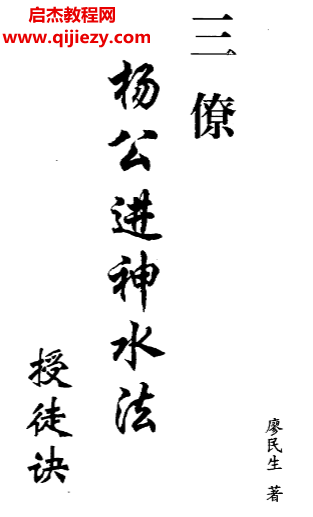 启杰教程网
www.qijiezy.com
三僚
杨公进神水法
授徒诀
廖民生 著